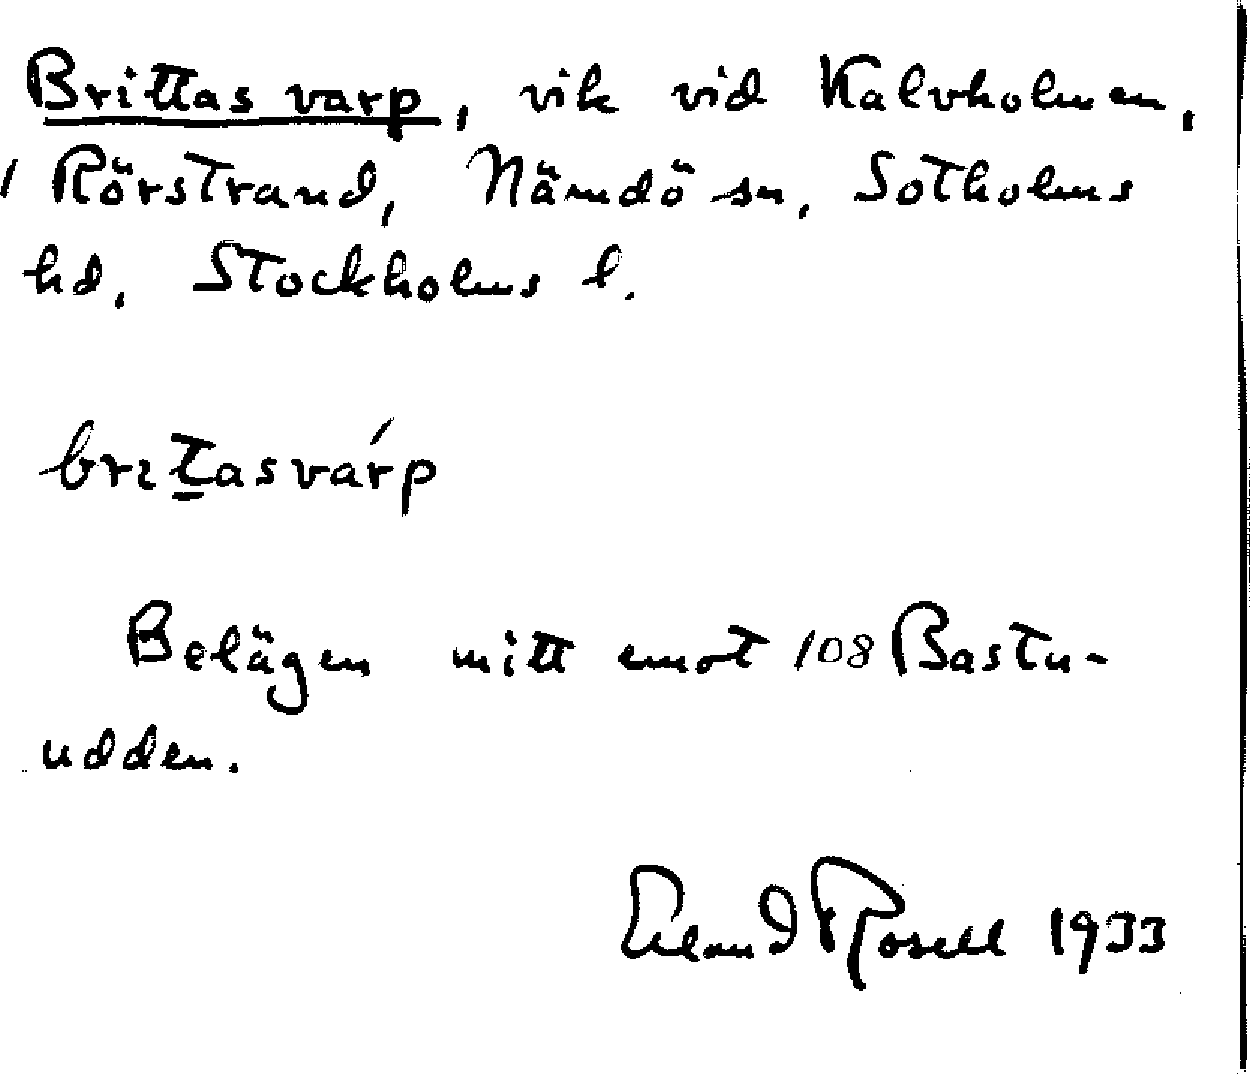 Brittas varp, vik vid Kalvholmen,
1 Rörstrand, Nämdö sn, Sotholms
hd, Stockholms l.
britasvárp
Belägen mitt emot 108 Bastu-
udden.
Erland Rosell 1933